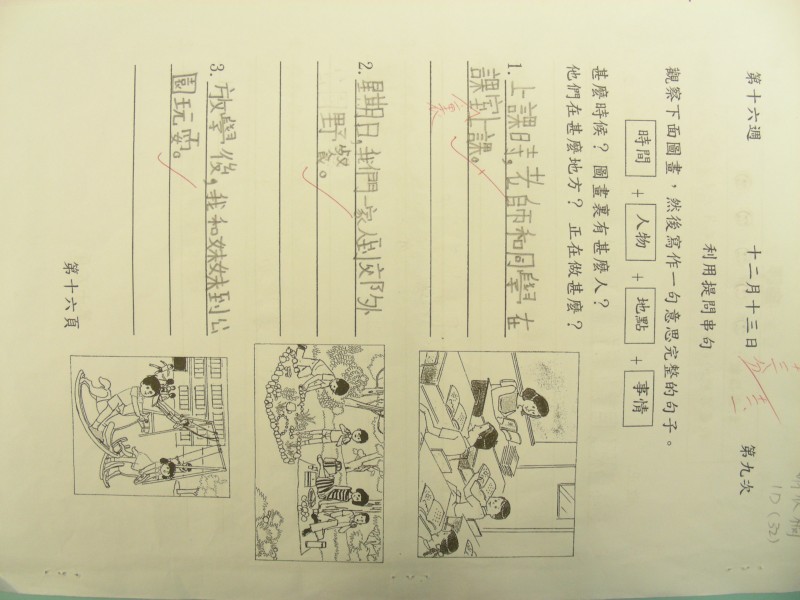 第十六週 十二月十三日 第九次
利用提問串句
觀察下面圖畫，然後寫作一句意思完整的句子。
時間 + 人物 + 地點 + 事情
甚麼時候？圖畫裏有甚麼人？
他們在甚麼地方？正在做甚麼？
1. 上課時，老師和同學在
課室上課。
2. 星期日，我們一家人到郊外
野餐。
3. 放學後，我和妹妹到公
園玩耍。
第十六頁
1D (32)